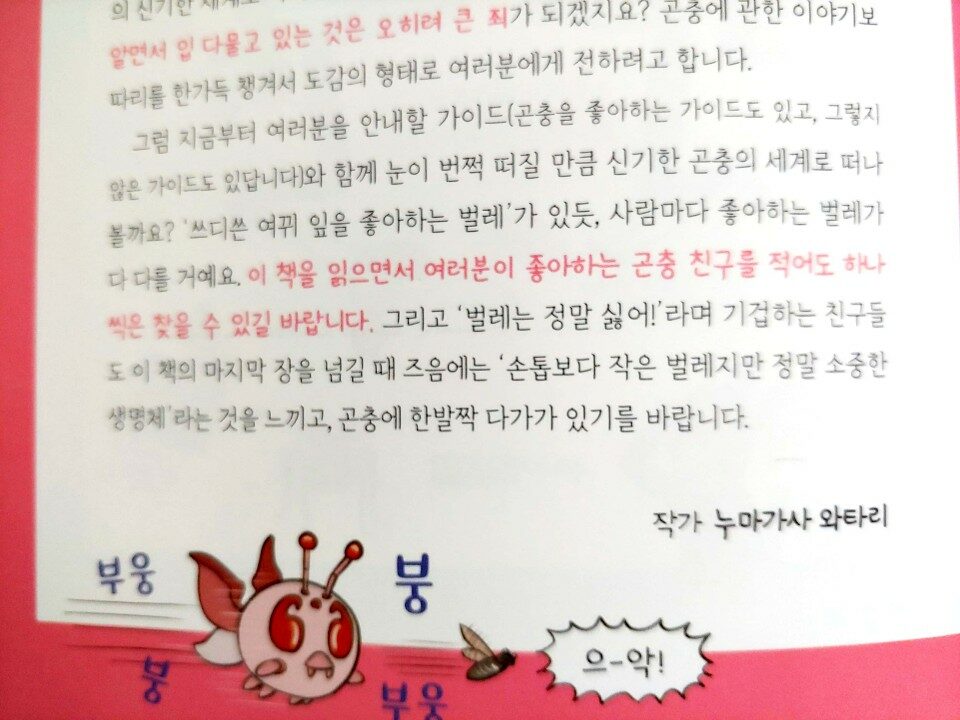 의 신기한 세계로
알면서 입 다물고 있는 것은 오히려 큰 죄가 되겠지요? 곤충에 관한 이야기보
따리를 한가득 챙겨서 도감의 형태로 여러분에게 전하려고 합니다.
그럼 지금부터 여러분을 안내할 가이드(곤충을 좋아하는 가이드도 있고, 그렇지
않은 가이드도 있답니다)와 함께 눈이 번쩍 떠질 만큼 신기한 곤충의 세계로 떠나
볼까요? '쓰디쓴 여뀌 잎을 좋아하는 벌레'가 있듯, 사람마다 좋아하는 벌레가
다 다를 거예요. 이 책을 읽으면서 여러분이 좋아하는 곤충 친구를 적어도 하나
씩은 찾을 수 있길 바랍니다. 그리고 '벌레는 정말 싫어!'라며 기겁하는 친구들
도 이 책의 마지막 장을 넘길 때 즈음에는 '손톱보다 작은 벌레지만 정말 소중한
생명체'라는 것을 느끼고, 곤충에 한발짝 다가가 있기를 바랍니다.
작가 누마가사 와타리
부웅
붕
으-악!
붕
부웅